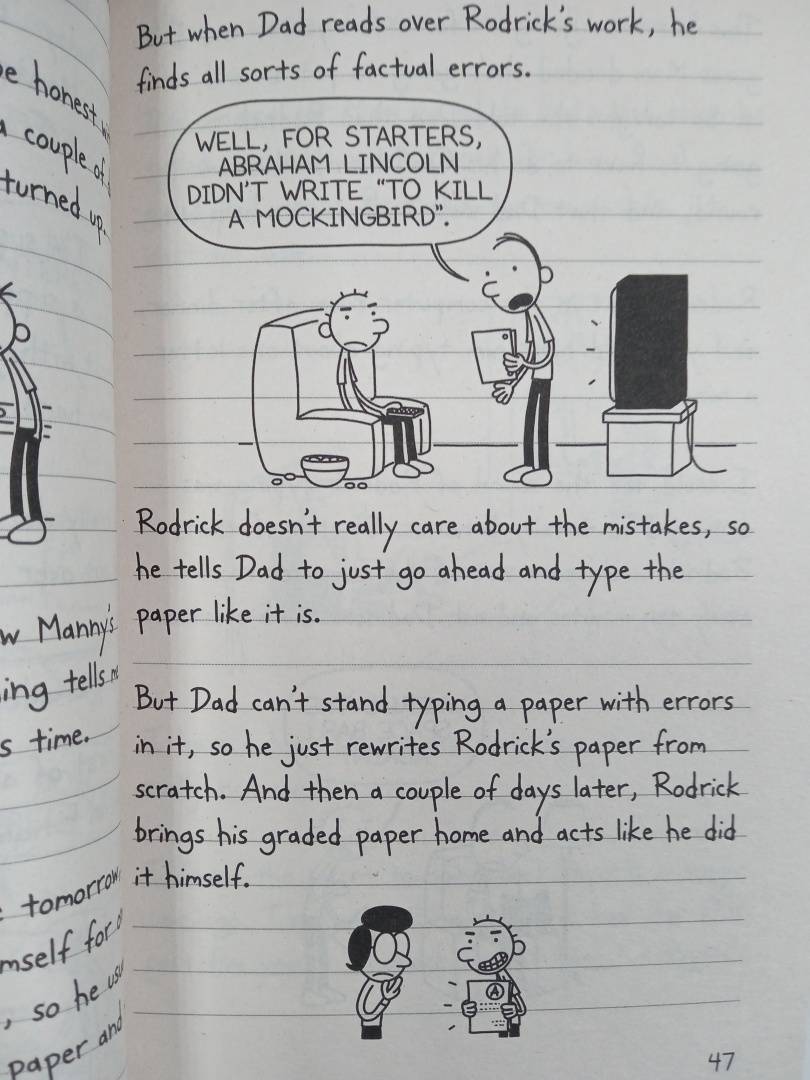 e honest
a couple of
turned up.
w Manny's
ing tells
s time.
tomorrow,
mself for
, so he
paper and
But when Dad reads over Rodrick's work, he
finds all sorts of factual errors.
WELL, FOR STARTERS,
ABRAHAM LINCOLN
DIDN'T WRITE "TO KILL
A MOCKINGBIRD".
Rodrick doesn't really care about the mistakes, so
he tells Dad to just go ahead and type the
paper like it is.
But Dad can't stand typing a paper with errors
in it, so he just rewrites Rodrick's paper from
scratch. And then a couple of days later, Rodrick
brings his graded paper home and acts like he did
it himself.
A
47